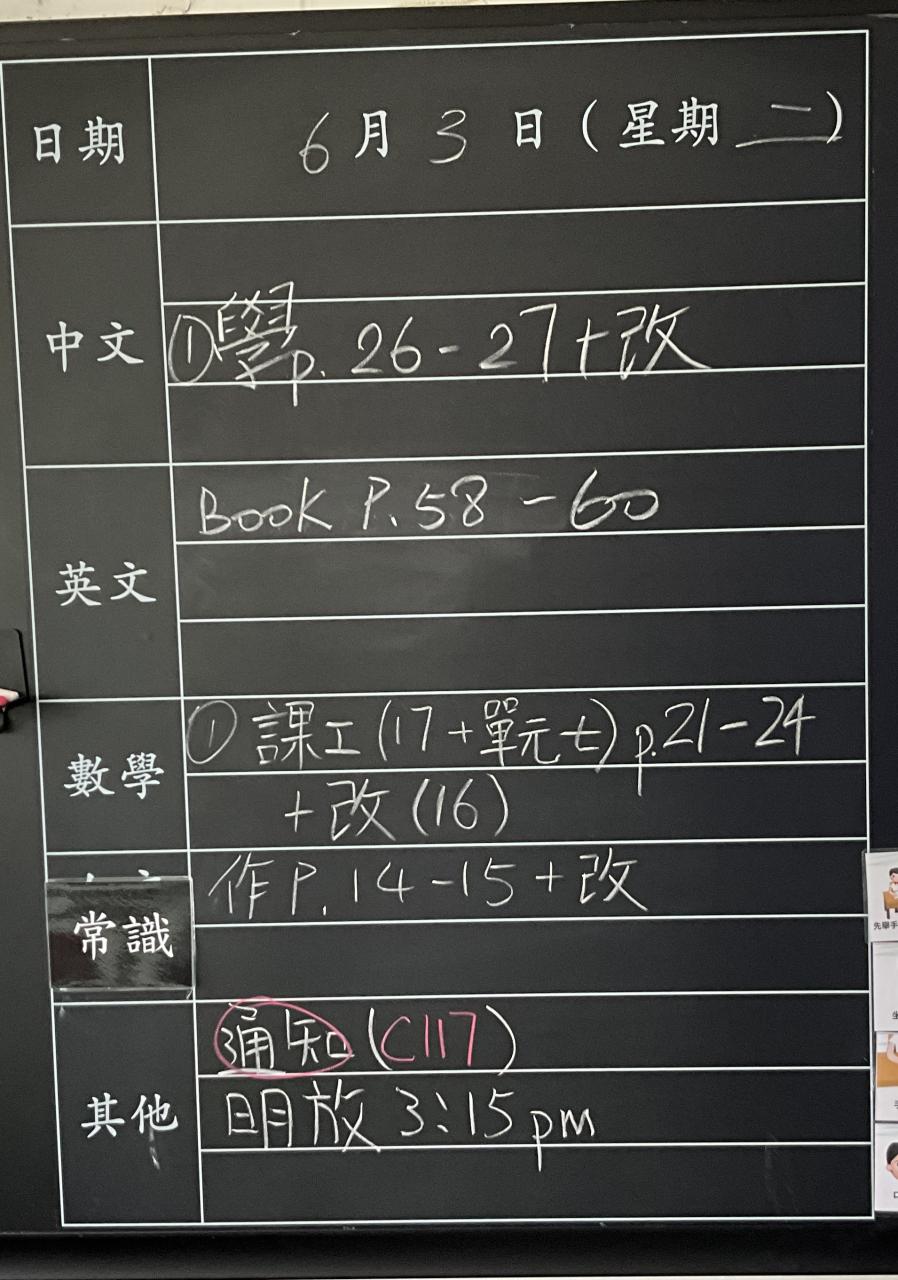 日期 6月3日(星期二)
中文
①學p. 26-27+改
英文
Book P. 58-60
數學
① 課工(17+單元七)p.21-24
+改(16)
常識
作P. 14-15+改
其他
通知(C117)
明放 3:15pm
先舉手